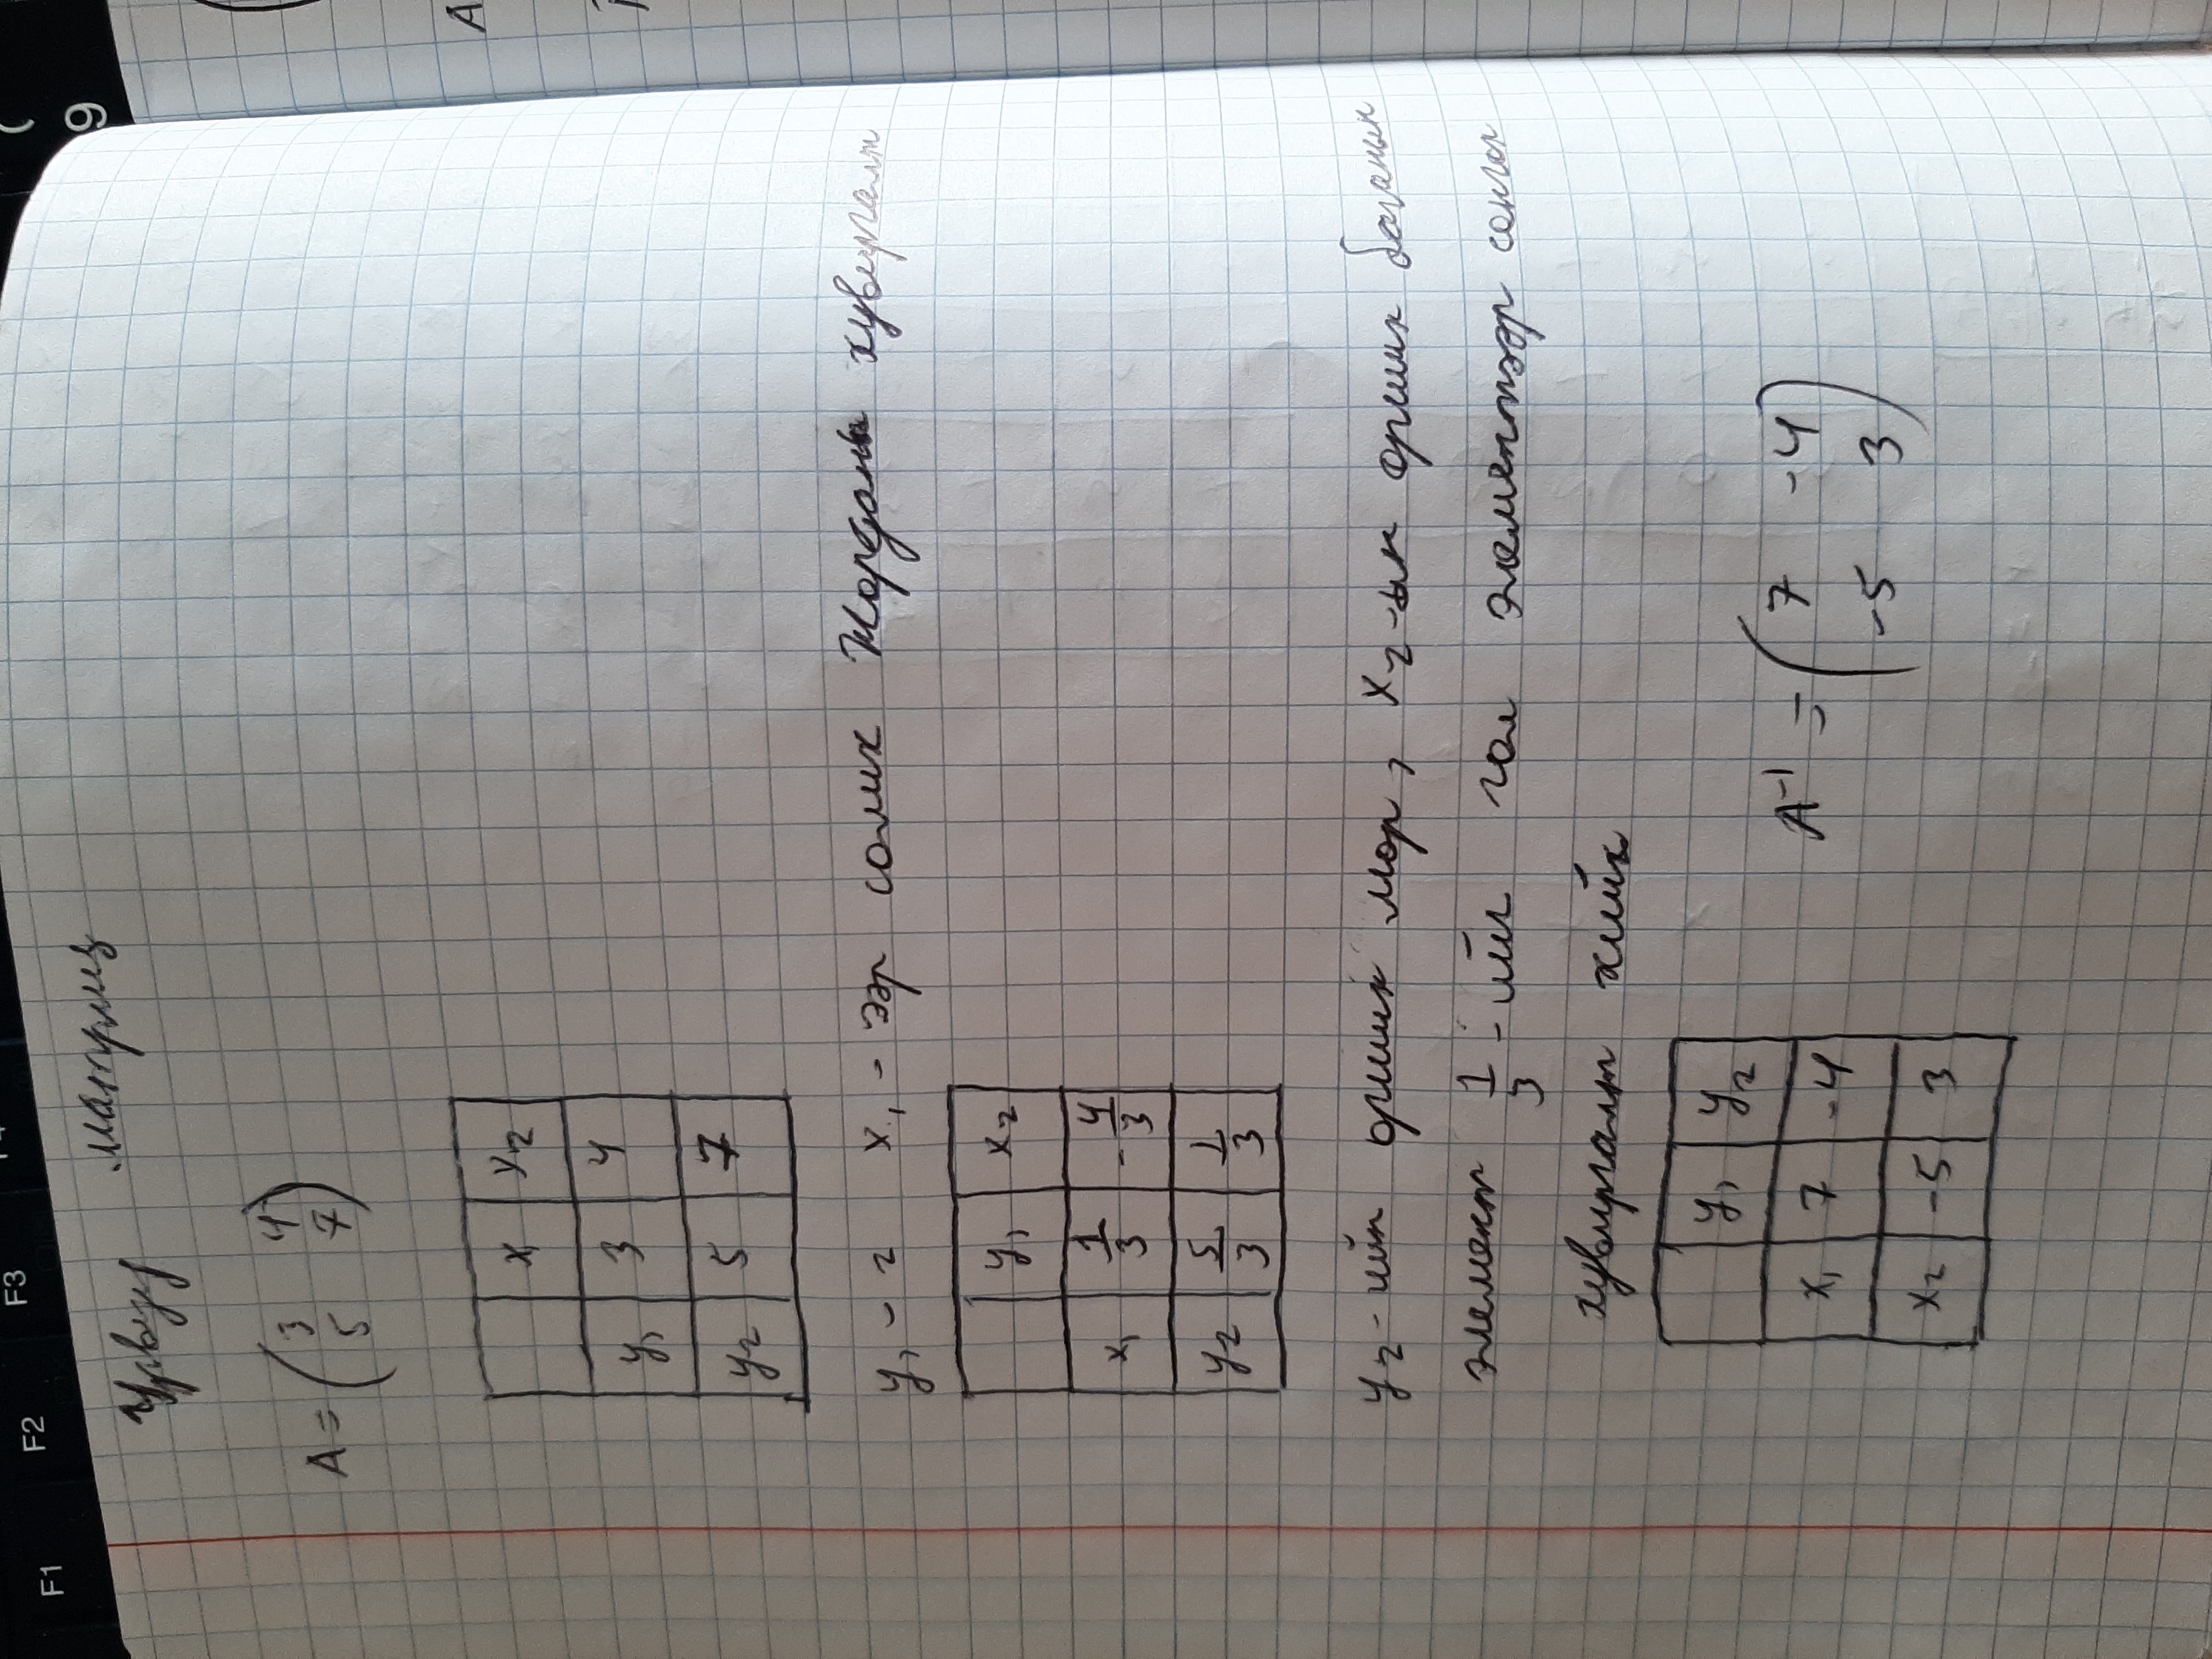 F1 F2 F3 F4
9
Урвуу матриц
A = ( 3 4
5 7 )
x₁ x₂
y₁ 3 4
y₂ 5 7
y₁ - г x₁ - ээр солих Жордан хувиргалт
y₁ x₂
x₁ 1/3 -4/3
y₂ 5/3 1/3
y₂-ийн орших мөр, x₂-ын орших баганын
элемент 1/3-ийг гол элементээр сонгон
хувиргалт хийх
y₁ y₂
x₁ 7 -4
x₂ -5 3
A⁻¹ = ( 7 -4
-5 3 )
A